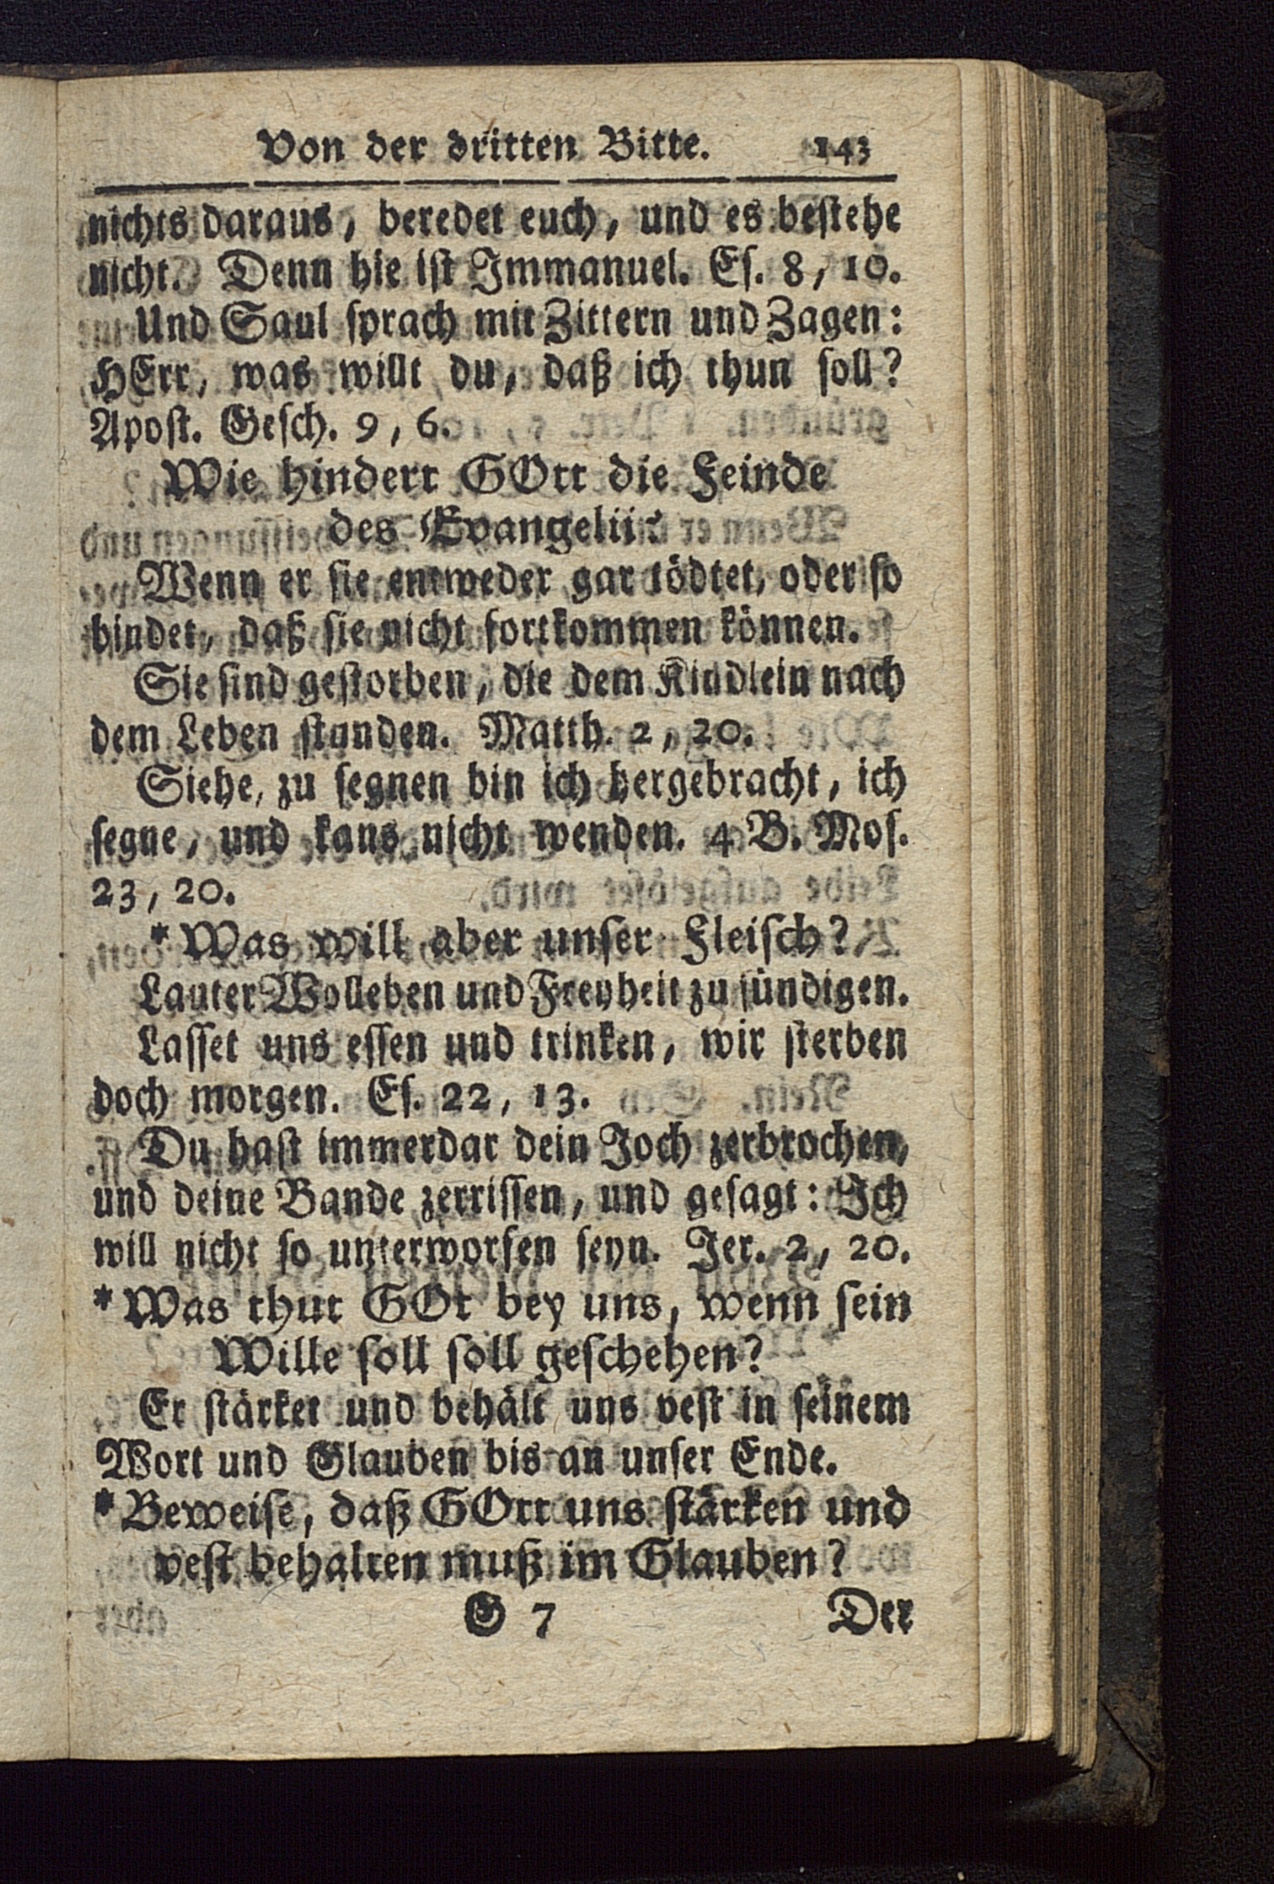 Von der dritten Bitte. 143
nichts daraus, beredet euch, und es bestehe
nicht. Denn hie ist Immanuel. Es. 8, 10.
Und Saul sprach mit Zittern und Zagen:
HErr, was willt du, daß ich thun soll?
Apost. Gesch. 9, 6.
Wie hindert GOtt die Feinde
des Evangelii?
Wenn er sie entweder gar tödtet, oder so
bindet, daß sie nicht fortkommen können.
Sie sind gestorben, die dem Kindlein nach
dem Leben stunden. Matth. 2, 20.
Siehe, zu segnen bin ich hergebracht, ich
segne, und kans nicht wenden. 4 B. Mos.
23, 20.
* Was will aber unser Fleisch?
Lauter Wolleben und Freyheit zu sündigen.
Lasset uns essen und trinken, wir sterben
doch morgen. Es. 22, 13.
Du hast immerdar dein Joch zerbrochen,
und deine Bande zerrissen, und gesagt: Ich
will nicht so unterworfen seyn. Jer. 2, 20.
* Was thut GOt bey uns, wenn sein
Wille soll soll geschehen?
Er stärket und behält uns vest in seinem
Wort und Glauben bis an unser Ende.
* Beweise, daß GOtt uns stärken und
vest behalten muß im Glauben?
G 7 Der